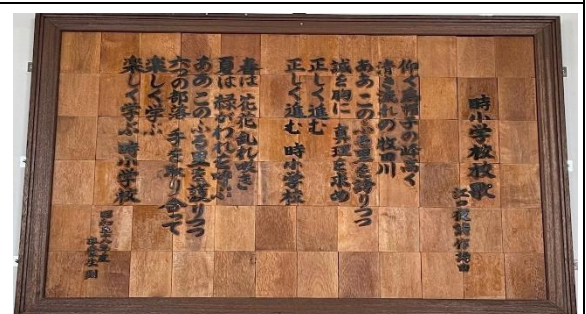 時小学校校歌
江口夜詩作詩曲
仰ぐ烏帽子の峰高く
清き流れの牧田川
ああこのふる里を誇りつつ
誠を胸に 真理を求め
正しく進む
正しく進む 時小学校
春は花花乱れ咲き
夏は緑がわれを呼ぶ
ああこのふる里を護りつつ
六つの部落 手を取り合って
楽しく学ぶ
楽しく学ぶ 時小学校
卒業生刻